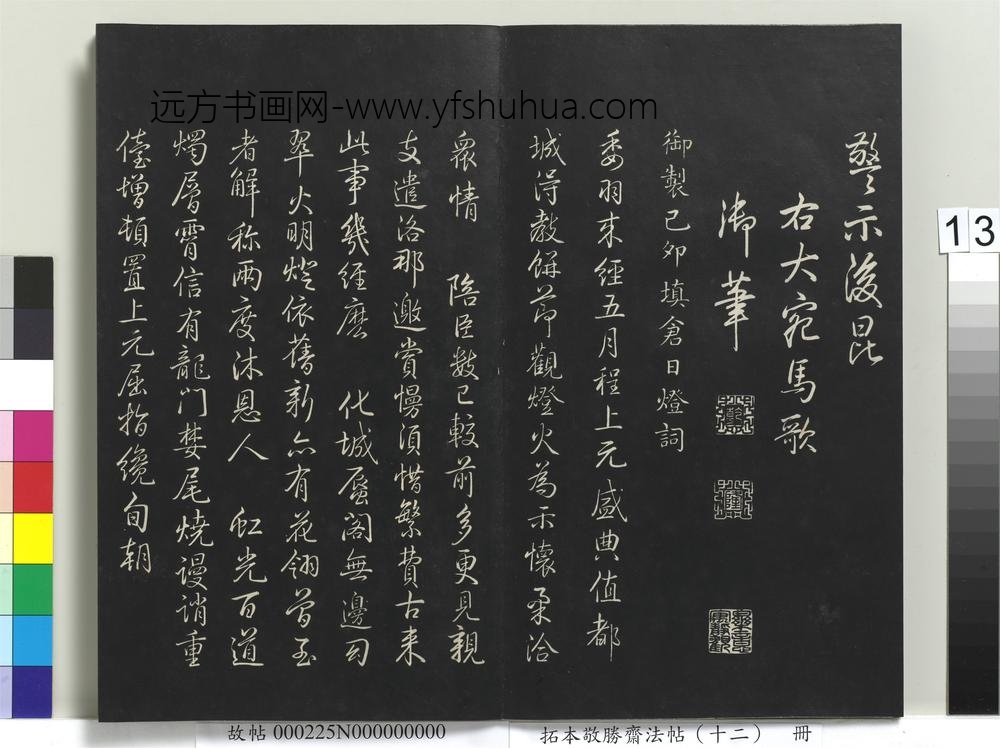 警示後昆
右大宛馬歌
御筆
御製己卯填倉日燈詞
委羽來經五月程上元盛典值都
城得教餅節觀燈火為示懷柔洽
衆情 陪臣數已較前多更見親
支遣洛那邀賞慢須惜繁費古来
此事幾經磨 化城蜃閣無邊匀
翠火明燈依舊新亦有花翎曾至
者解称兩度沐恩人 虹光百道
燭層霄信有龍門婪尾燒謾誚重
儓增頓置上元屈指纔旬朝
远方书画网-www.yfshuhua.com
13
故帖 000225N000000000
拓本敬勝齋法帖（十二） 冊